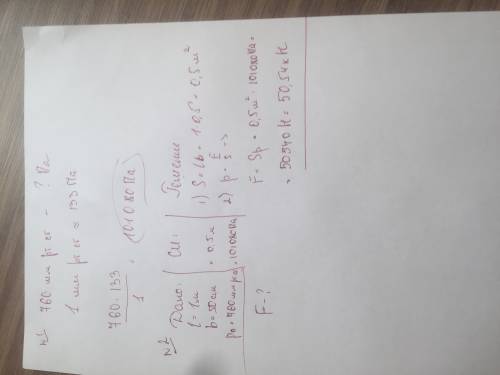 №1 760 мм рт ст - ? Па
1 мм рт ст = 133 Па
760·133
1
= 101080 Па
№2
Дано:
l = 1м
b = 50см
p₀ = 760мм рт
F - ?
Си:
= 0,5м
= 101080Па
Решение
1) S = lb = 1·0,5 = 0,5м²
2) p = F/S →
F = Sp = 0,5м² · 101080Па =
= 50540 Н = 50,54 кН